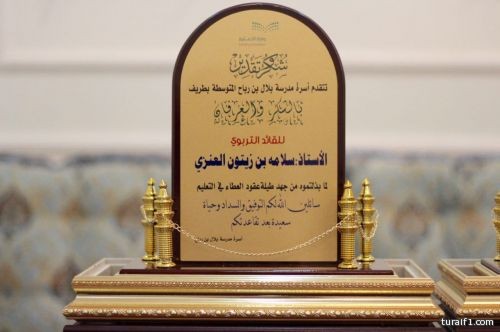 وزارة التعليم
شكر وتقدير
تتقدم أسرة مدرسة بلال بن رباح المتوسطة بطريف
بالشكر والعرفان
للقائد التربوي
الأستاذ:سلامه بن زيتون العنزي
لما بذلتموه من جهد طيلة عقود العطاء في التعليم
سائلين الله لكم التوفيق والسداد وحياة
سعيدة بعد تقاعدكم
أسرة مدرسة بلال بن
turaif1.com